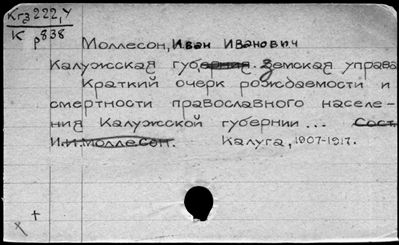 Кгз 222,4
К р838
Моллесон, Иван Иванович
Калужская губерния. Земская управа
Краткий очерк рождаемости и
смертности православного населе-
ния Калужской губернии... Сост.
И.И. Моллесон. Калуга, 1907-1917.